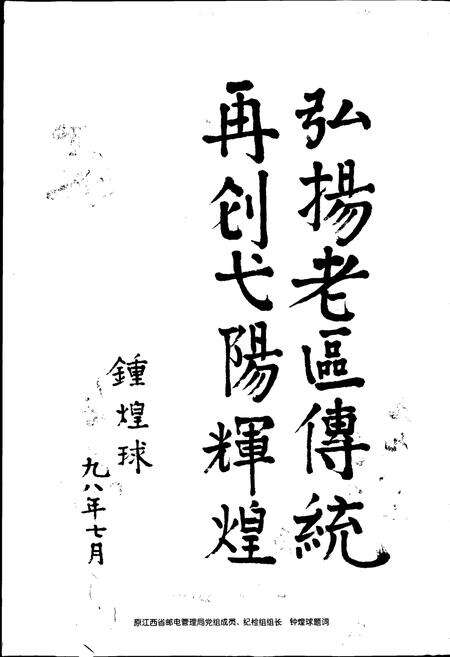 弘揚老區傳統
再创弋陽輝煌
鍾煌球
九八年七月
原江西省邮电管理局党组成员、纪检组组长　钟煌球题词